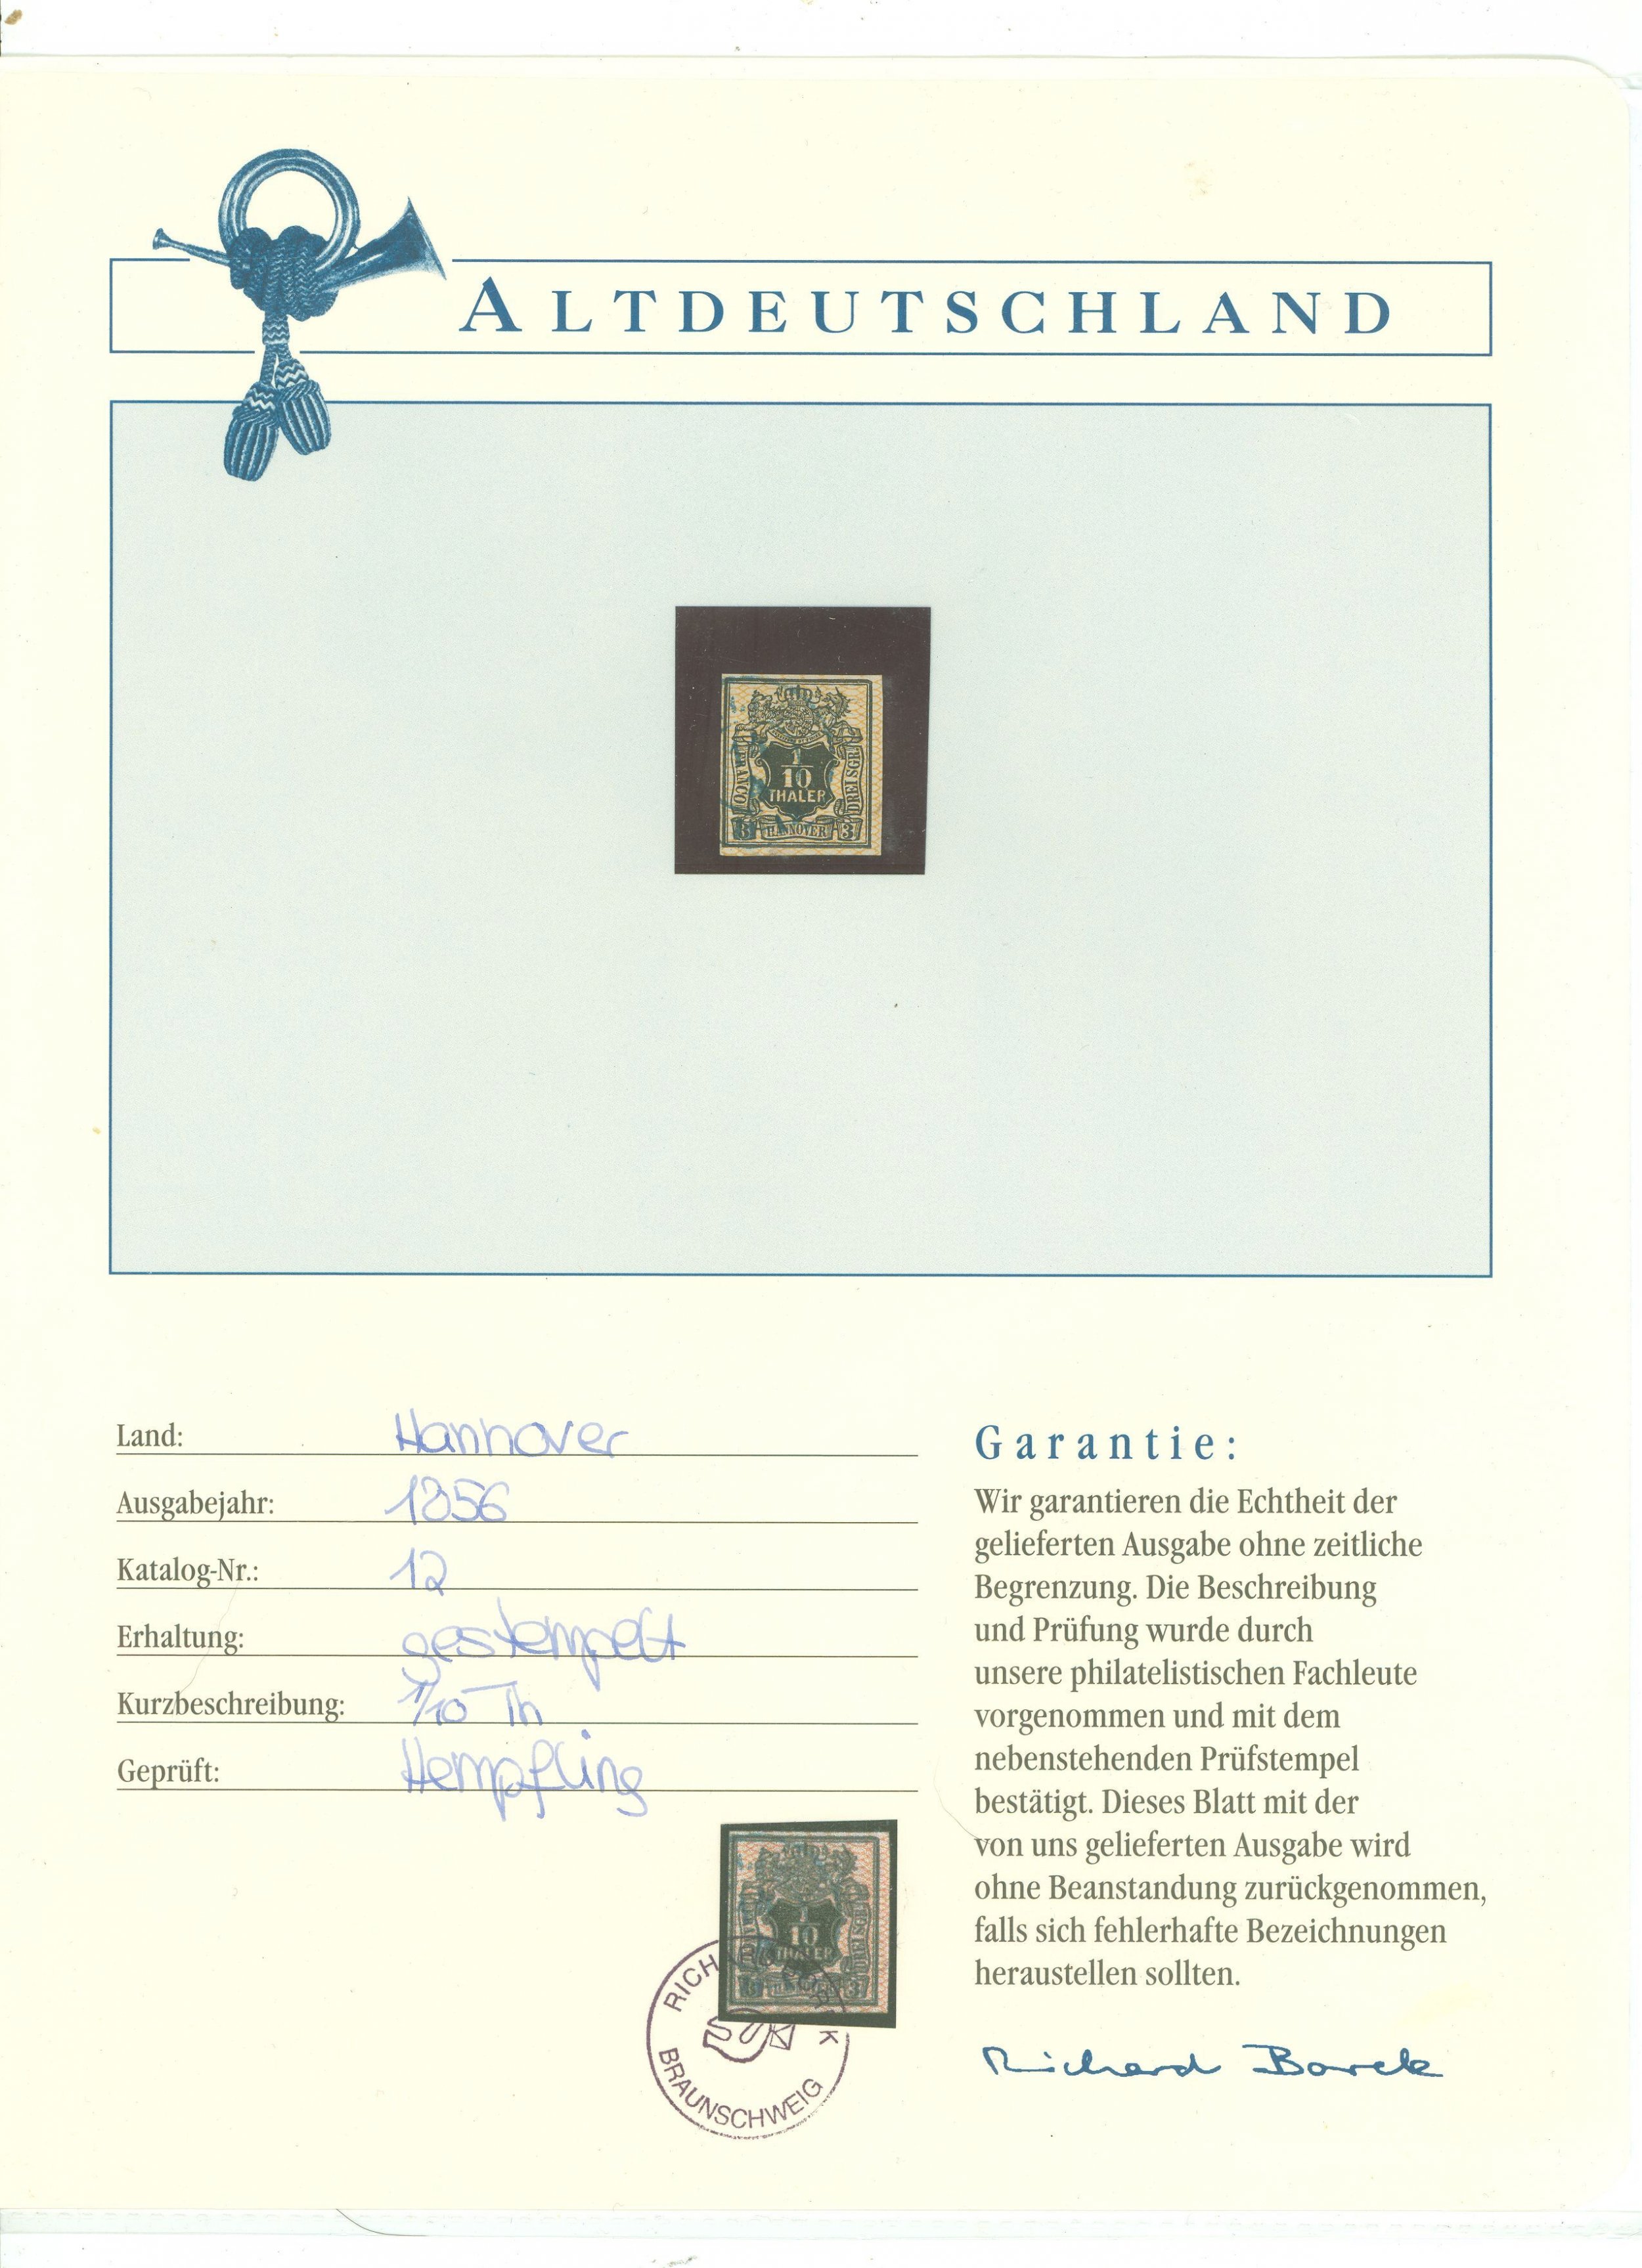 ALTDEUTSCHLAND
1
10
THALER
FRANCO
DREI SGR.
3 HANNOVER 3
Land: Hannover
Ausgabejahr: 1856
Katalog-Nr.: 12
Erhaltung: gestempelt
Kurzbeschreibung: 1/10 Th
Geprüft: Hempfling
1
10
THALER
DREI SGR
3
RICHARD BOREK
BRAUNSCHWEIG
Garantie:
Wir garantieren die Echtheit der
gelieferten Ausgabe ohne zeitliche
Begrenzung. Die Beschreibung
und Prüfung wurde durch
unsere philatelistischen Fachleute
vorgenommen und mit dem
nebenstehenden Prüfstempel
bestätigt. Dieses Blatt mit der
von uns gelieferten Ausgabe wird
ohne Beanstandung zurückgenommen,
falls sich fehlerhafte Bezeichnungen
heraustellen sollten.
Richard Borek